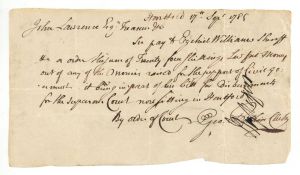 Hartford 17th Sepr 1785
John Lawrence Esqr Treasurer
Sir pay to Ezekiel Williams Sheriff
or order the sum of Twenty four shillings Lawful Money
out of any of the Monies raised for the support of Civil Go-
vernment it being in part of his Bill for Disbursements
for the Superior Court now sitting in Hartford
By order of Court Geo
Clerk